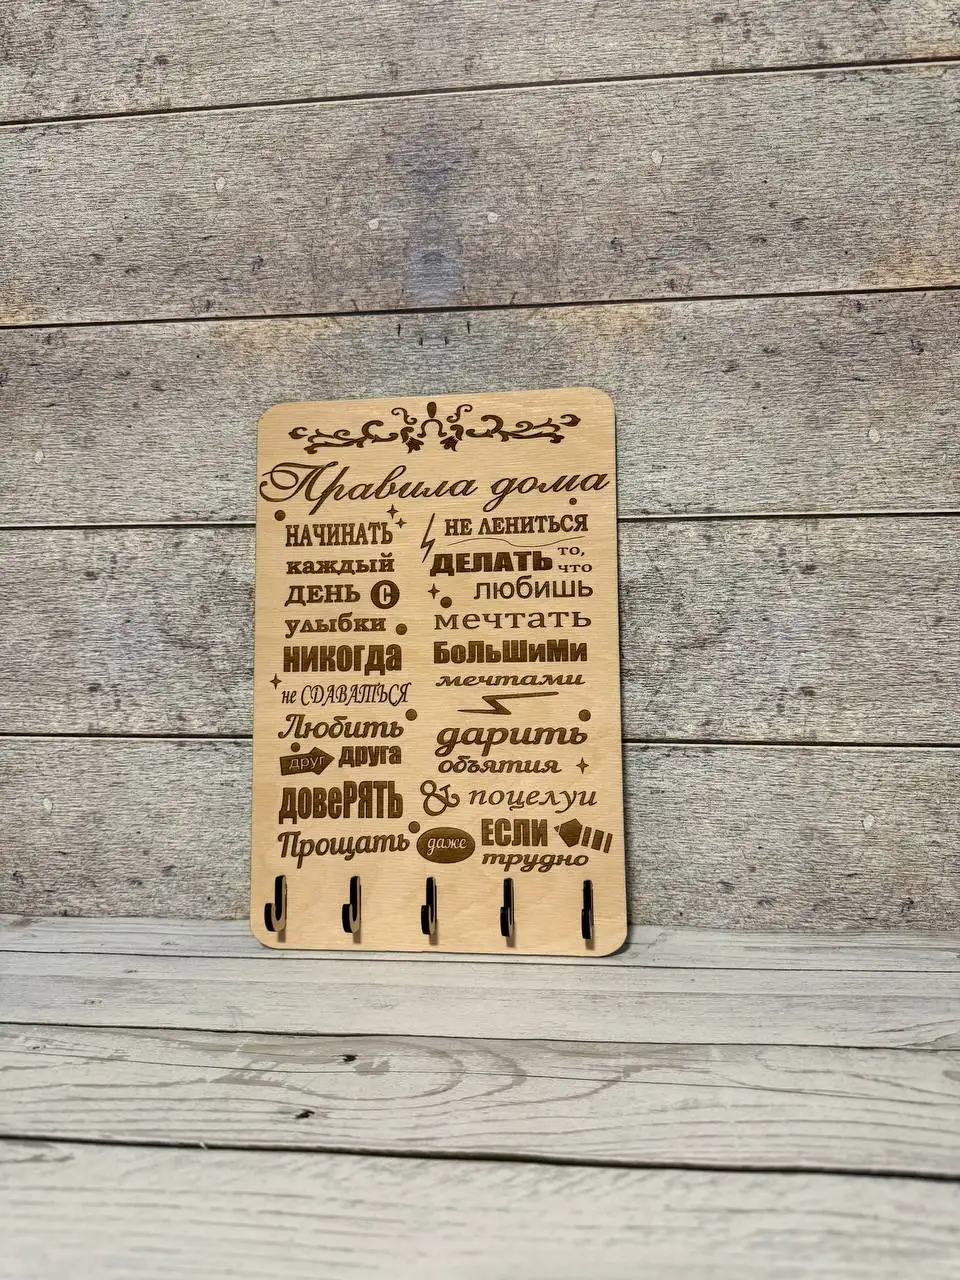 Правила дома
НАЧИНАТЬ
каждый
ДЕНЬ С
улыбки
никогда
не СДАВАТЬСЯ
Любить
друг друга
довеРЯТЬ
Прощать
НЕ ЛЕНИТЬСЯ
ДЕЛАТЬ то, что
любишь
мечтать
БоЛьШиМи
мечтами
дарить
объятия
& поцелуи
даже ЕСЛИ
трудно